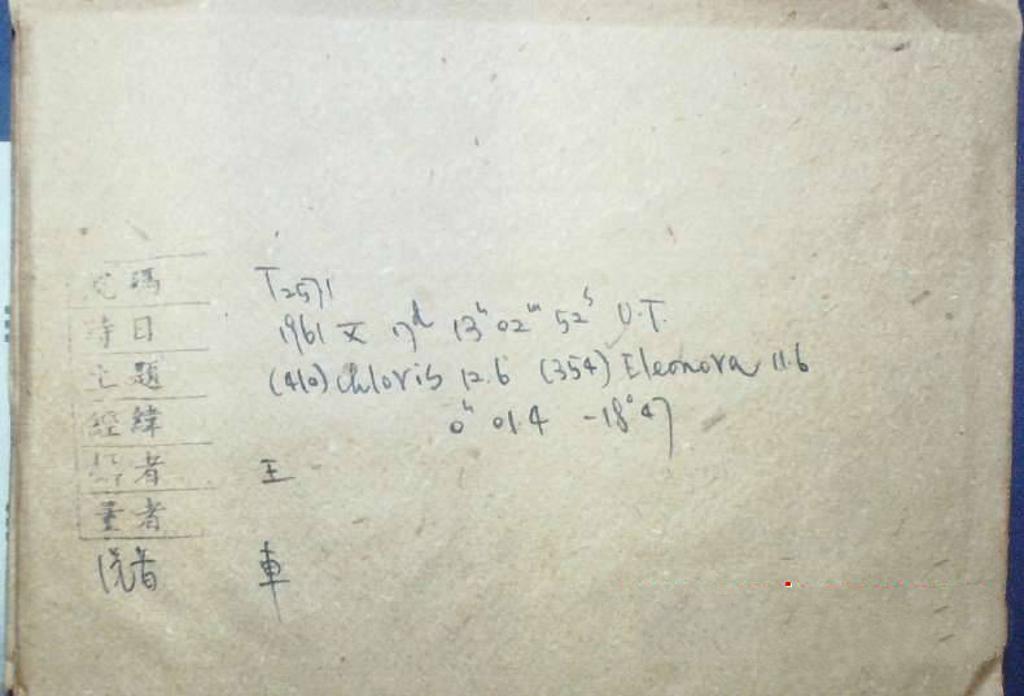 號碼 T2571
時日 1961 X 17ᵈ 13ʰ 02ᵐ 52ˢ U.T.
主題 (410) Chloris 12.6 (354) Eleonora 11.6
經緯 0ʰ 01.4 -18°47
者 王
量者
洗者 車